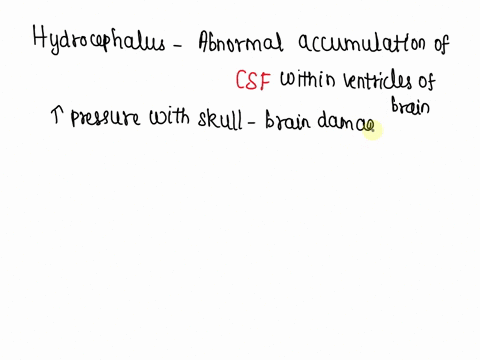 Hydrocephalus - Abnormal accumulation of
CSF within ventricles of
brain
↑ pressure with skull - brain damae